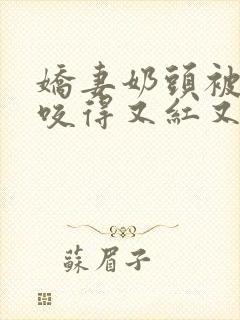 嬌妻奶頭被
咬得又紅又
蘇眉子